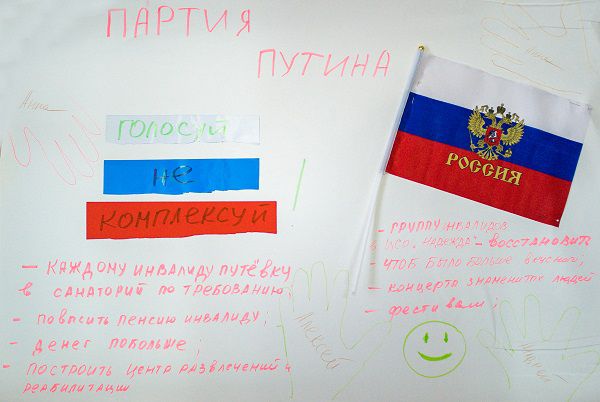 ПАРТИЯ
ПУТИНА
Анна
ГОЛОСУЙ
НЕ
КОМПЛЕКСУЙ
РОССИЯ
– КАЖДОМУ ИНВАЛИДУ ПУТЁВКУ
в САНАТОРИЙ ПО ТРЕБОВАНИЮ;
– ПОВЫСИТЬ ПЕНСИЮ ИНВАЛИДУ;
– ДЕНЕГ ПОБОЛЬШЕ;
– ПОСТРОИТЬ ЦЕНТР РАЗВЛЕЧЕНИЙ и
РЕАБИЛИТАЦИИ
– ГРУППУ ИНВАЛИДОВ
"НАДЕЖДА" – ВОССТАНОВИТЬ
– ЧТОБ БЫЛО БОЛЬШЕ ВКУСНОГО;
– КОНЦЕРТА ЗНАМЕНИТЫХ ЛЮДЕЙ
– ФЕСТИВАЛИ;
Алексей